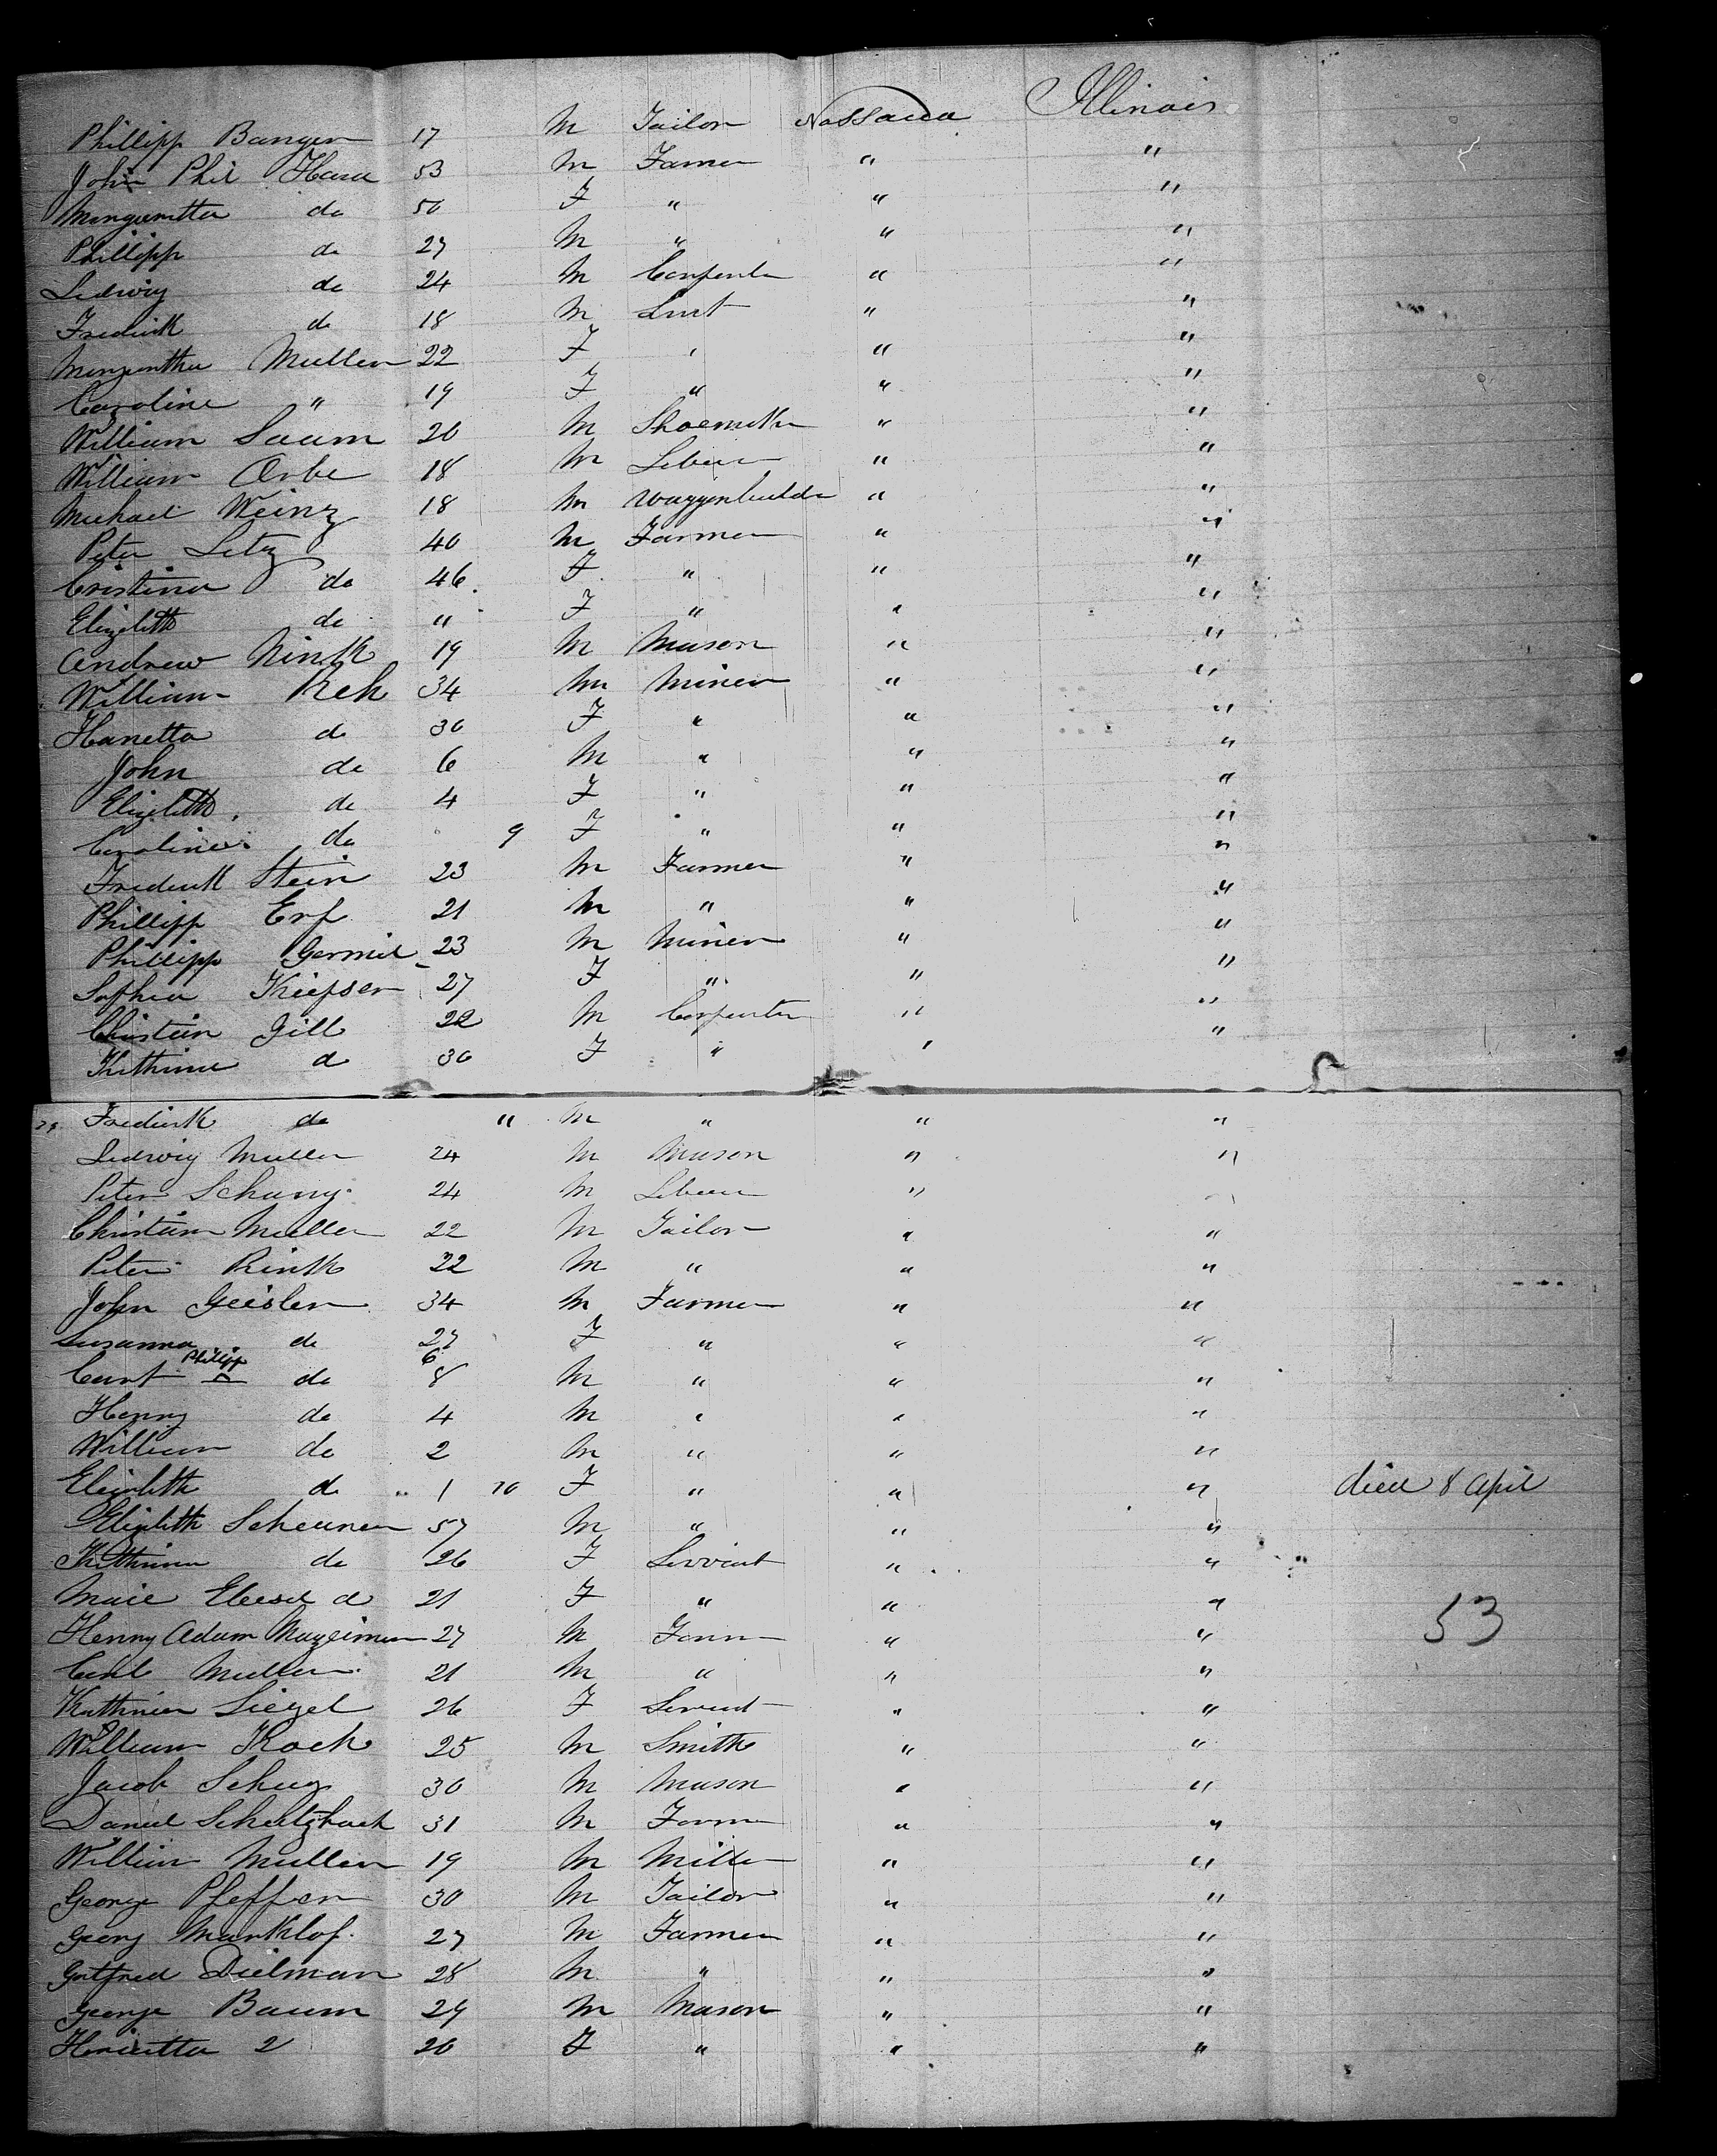 Phillipp Banger 17 M Tailor Nassaua Illinois
John Phil Hara 53 M Farmer " "
Margaretta do 50 F " " "
Phillipp do 27 M " " "
Ludwig do 24 M Carpenter " "
Fredrick do 18 M " "
Margaretha Muller 22 F " " "
Caroline " 19 F " " "
William Saum 20 M Shoemaker " "
William Orbe 18 M " "
Michael Weinz 18 M Waggenbuilder " "
Peter Letz 40 M Farmer " "
Cristina do 46 F " " "
Elizabeth do " F " " "
Andrew Rinth 19 M Mason " "
William Reh 34 M Miner " "
Hanetta do 30 F " " "
John do 6 M " " "
Elizabeth do 4 F " " "
Caroline do 9 F " " "
Fredrick Stein 23 M Farmer " "
Phillipp Erf 21 M " " "
Phillipp Germil 23 M Miner " "
Sophia 27 F " " "
Christian Gill 22 M Carpenter " "
Kathrina do 30 F " " "
Fredrick do " M " " "
Ludwig Muller 24 M Mason " "
Peter Schung 24 M " "
Christian Muller 22 M Tailor " "
Peter Rinth 22 M " " "
John Geisler 34 M Farmer " "
Susanna do 27 F " " "
Phillipp 6
Carl do 8 M " " "
Henry do 4 M " " "
William do 2 M " " "
Elizabeth do 1 10 F " " " died 8 April
Elizabeth Scheuner 57 M " " "
Kathrina do 26 F Servant " "
Marie do 21 F " " " 53
Henry Adam 27 M Farmer " "
Carl Muller 21 M " " "
Kathrina Siegel 26 F Servant " "
William Koch 25 M Smith " "
Jacob Schug 30 M Mason " "
Daniel 31 M Farmer " "
William Muller 19 M Miller " "
George Pfeffer 30 M Tailor " "
Georg Marklof 27 M Farmer " "
Gottfried Dielman 28 M " " "
George Baum 29 M Mason " "
Henrietta 2 20 F " " "